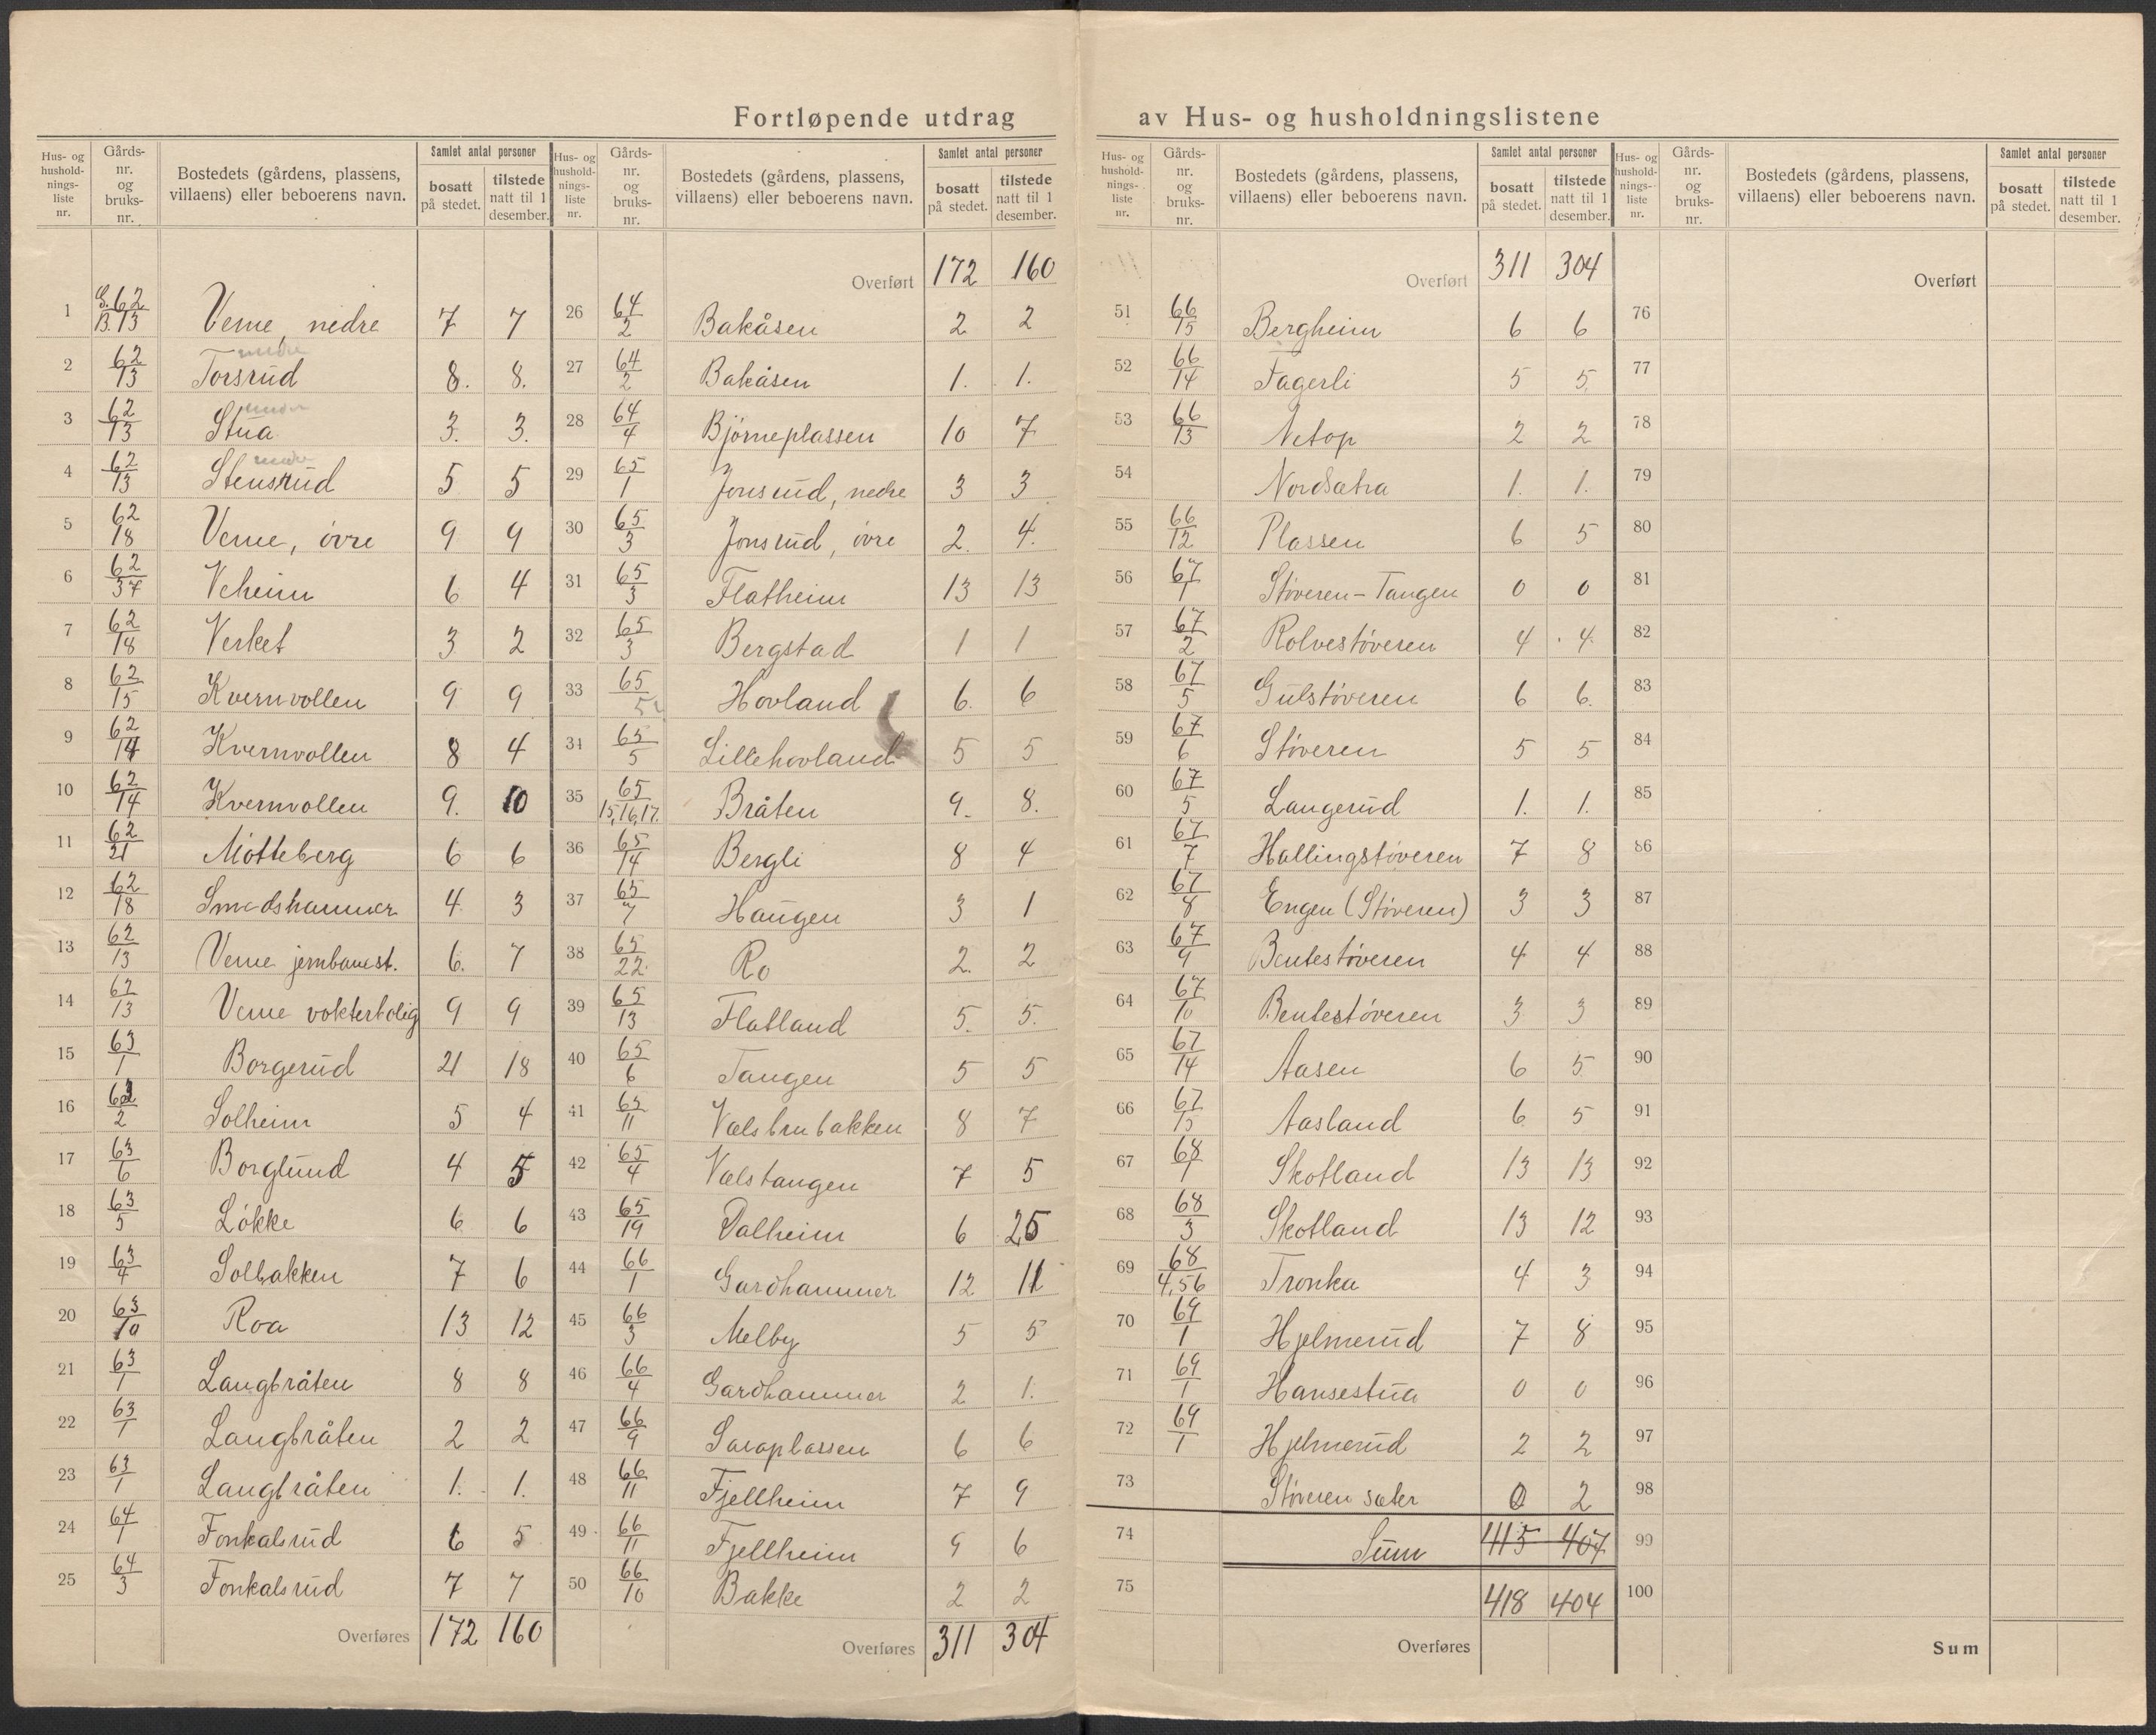 Fortløpende utdrag av Hus- og husholdningslistene
Hus- og husholdningsliste nr. | Gårdsnr. og bruksnr. | Bostedets (gårdens, plassens, villaens) eller beboerens navn. | Samlet antal personer | bosatt på stedet. | tilstede natt til 1 desember.
1 G. 62 / B. 13 Verne, nedre 7 7
2 62/13 Torsrud nedre 8. 8.
3 62/13 Stua 3. 3.
4 62/13 Stensrud 5 5
5 62/18 Verne, övre 9 9
6 62/37 Veheim 6 4
7 62/18 Verket 3 2
8 62/15 Kvernvollen 9 9
9 62/14 Kvernvollen 8 4
10 62/14 Kvernvollen 9. 10
11 62/21 Motteberg 6 6
12 62/18 Smedshammer 4 3
13 62/13 Verne jernbanest. 6. 7
14 62/13 Verne vokterbolig 9 9
15 63/1 Borgerud 21 18
16 63/2 Solheim 5 4
17 63/6 Borglund 4 5
18 63/5 Lökke 6 6
19 63/4 Solbakken 7 6
20 63/10 Roa 13 12
21 63/1 Langbråten 8 8
22 63/1 Langbråten 2 2
23 63/1 Langbråten 1. 1.
24 64/1 Fonkalsrud 6 5
25 64/3 Fonkalsrud 7 7
Overføres 172 160
Hus- og husholdningsliste nr. | Gårdsnr. og bruksnr. | Bostedets (gårdens, plassens, villaens) eller beboerens navn. | Samlet antal personer | bosatt på stedet. | tilstede natt til 1 desember.
Overført 172 160
26 64/2 Bakåsen 2 2
27 64/2 Bakåsen 1. 1.
28 64/4 Björneplassen 10 7
29 65/1 Jonsrud, nedre 3 3
30 65/3 Jonsrud, övre 2. 4.
31 65/3 Flatheim 13 13
32 65/3 Bergstad 1 1
33 65/5 Hovland 6. 6
34 65/5 Lillehovland 5 5
35 65/15,16,17. Bråten 9. 8.
36 65/14 Bergli 8 4
37 65/7 Haugen 3 1
38 65/22 Ro 2. 2
39 65/13 Flatland 5. 5.
40 65/6 Tangen 5 5
41 65/11 Vælsbrubakken 8 7
42 65/4 Vælstangen 7 5
43 65/19 Dalheim 6 25
44 66/1 Gardhammer 12 11
45 66/3 Melby 5 5
46 66/4 Gardhammer 2 1.
47 66/9 Saraplassen 6 6
48 66/11 Fjellheim 7 9
49 66/11 Fjellheim 9 6
50 66/10 Bakke 2 2
Overføres 311 304
Hus- og husholdningsliste nr. | Gårdsnr. og bruksnr. | Bostedets (gårdens, plassens, villaens) eller beboerens navn. | Samlet antal personer | bosatt på stedet. | tilstede natt til 1 desember.
Overført 311 304
51 66/15 Bergheim 6 6
52 66/14 Fagerli 5 5.
53 66/13 Netop 2 2
54 Nordsætra 1. 1.
55 66/12 Plassen 6 5
56 67/1 Støveren-Tangen 0 0
57 67/2 Rolvestøveren 4 4.
58 67/5 Gulstøveren 6 6.
59 67/6 Støveren 5 5
60 67/5 Langerud 1. 1.
61 67/7 Hallingstøveren 7 8
62 67/8 Engen (Støveren) 3 3
63 67/9 Bentestøveren 4 4
64 67/10 Bentestøveren 3 3
65 67/14 Aasen 6 5
66 67/15 Aasland 6 5
67 68/1 Skotland 13 13
68 68/3 Skotland 13 12
69 68/4,56 Tronka 4 3
70 69/1 Hjelmerud 7 8
71 69/1 Hansestua 0 0
72 69/1 Hjelmerud 2 2
73 Støveren sæter 0 2
74 Sum 415 407
75 418 404
Overføres
Hus- og husholdningsliste nr. | Gårdsnr. og bruksnr. | Bostedets (gårdens, plassens, villaens) eller beboerens navn. | Samlet antal personer | bosatt på stedet. | tilstede natt til 1 desember.
Overført
76
77
78
79
80
81
82
83
84
85
86
87
88
89
90
91
92
93
94
95
96
97
98
99
100
Sum